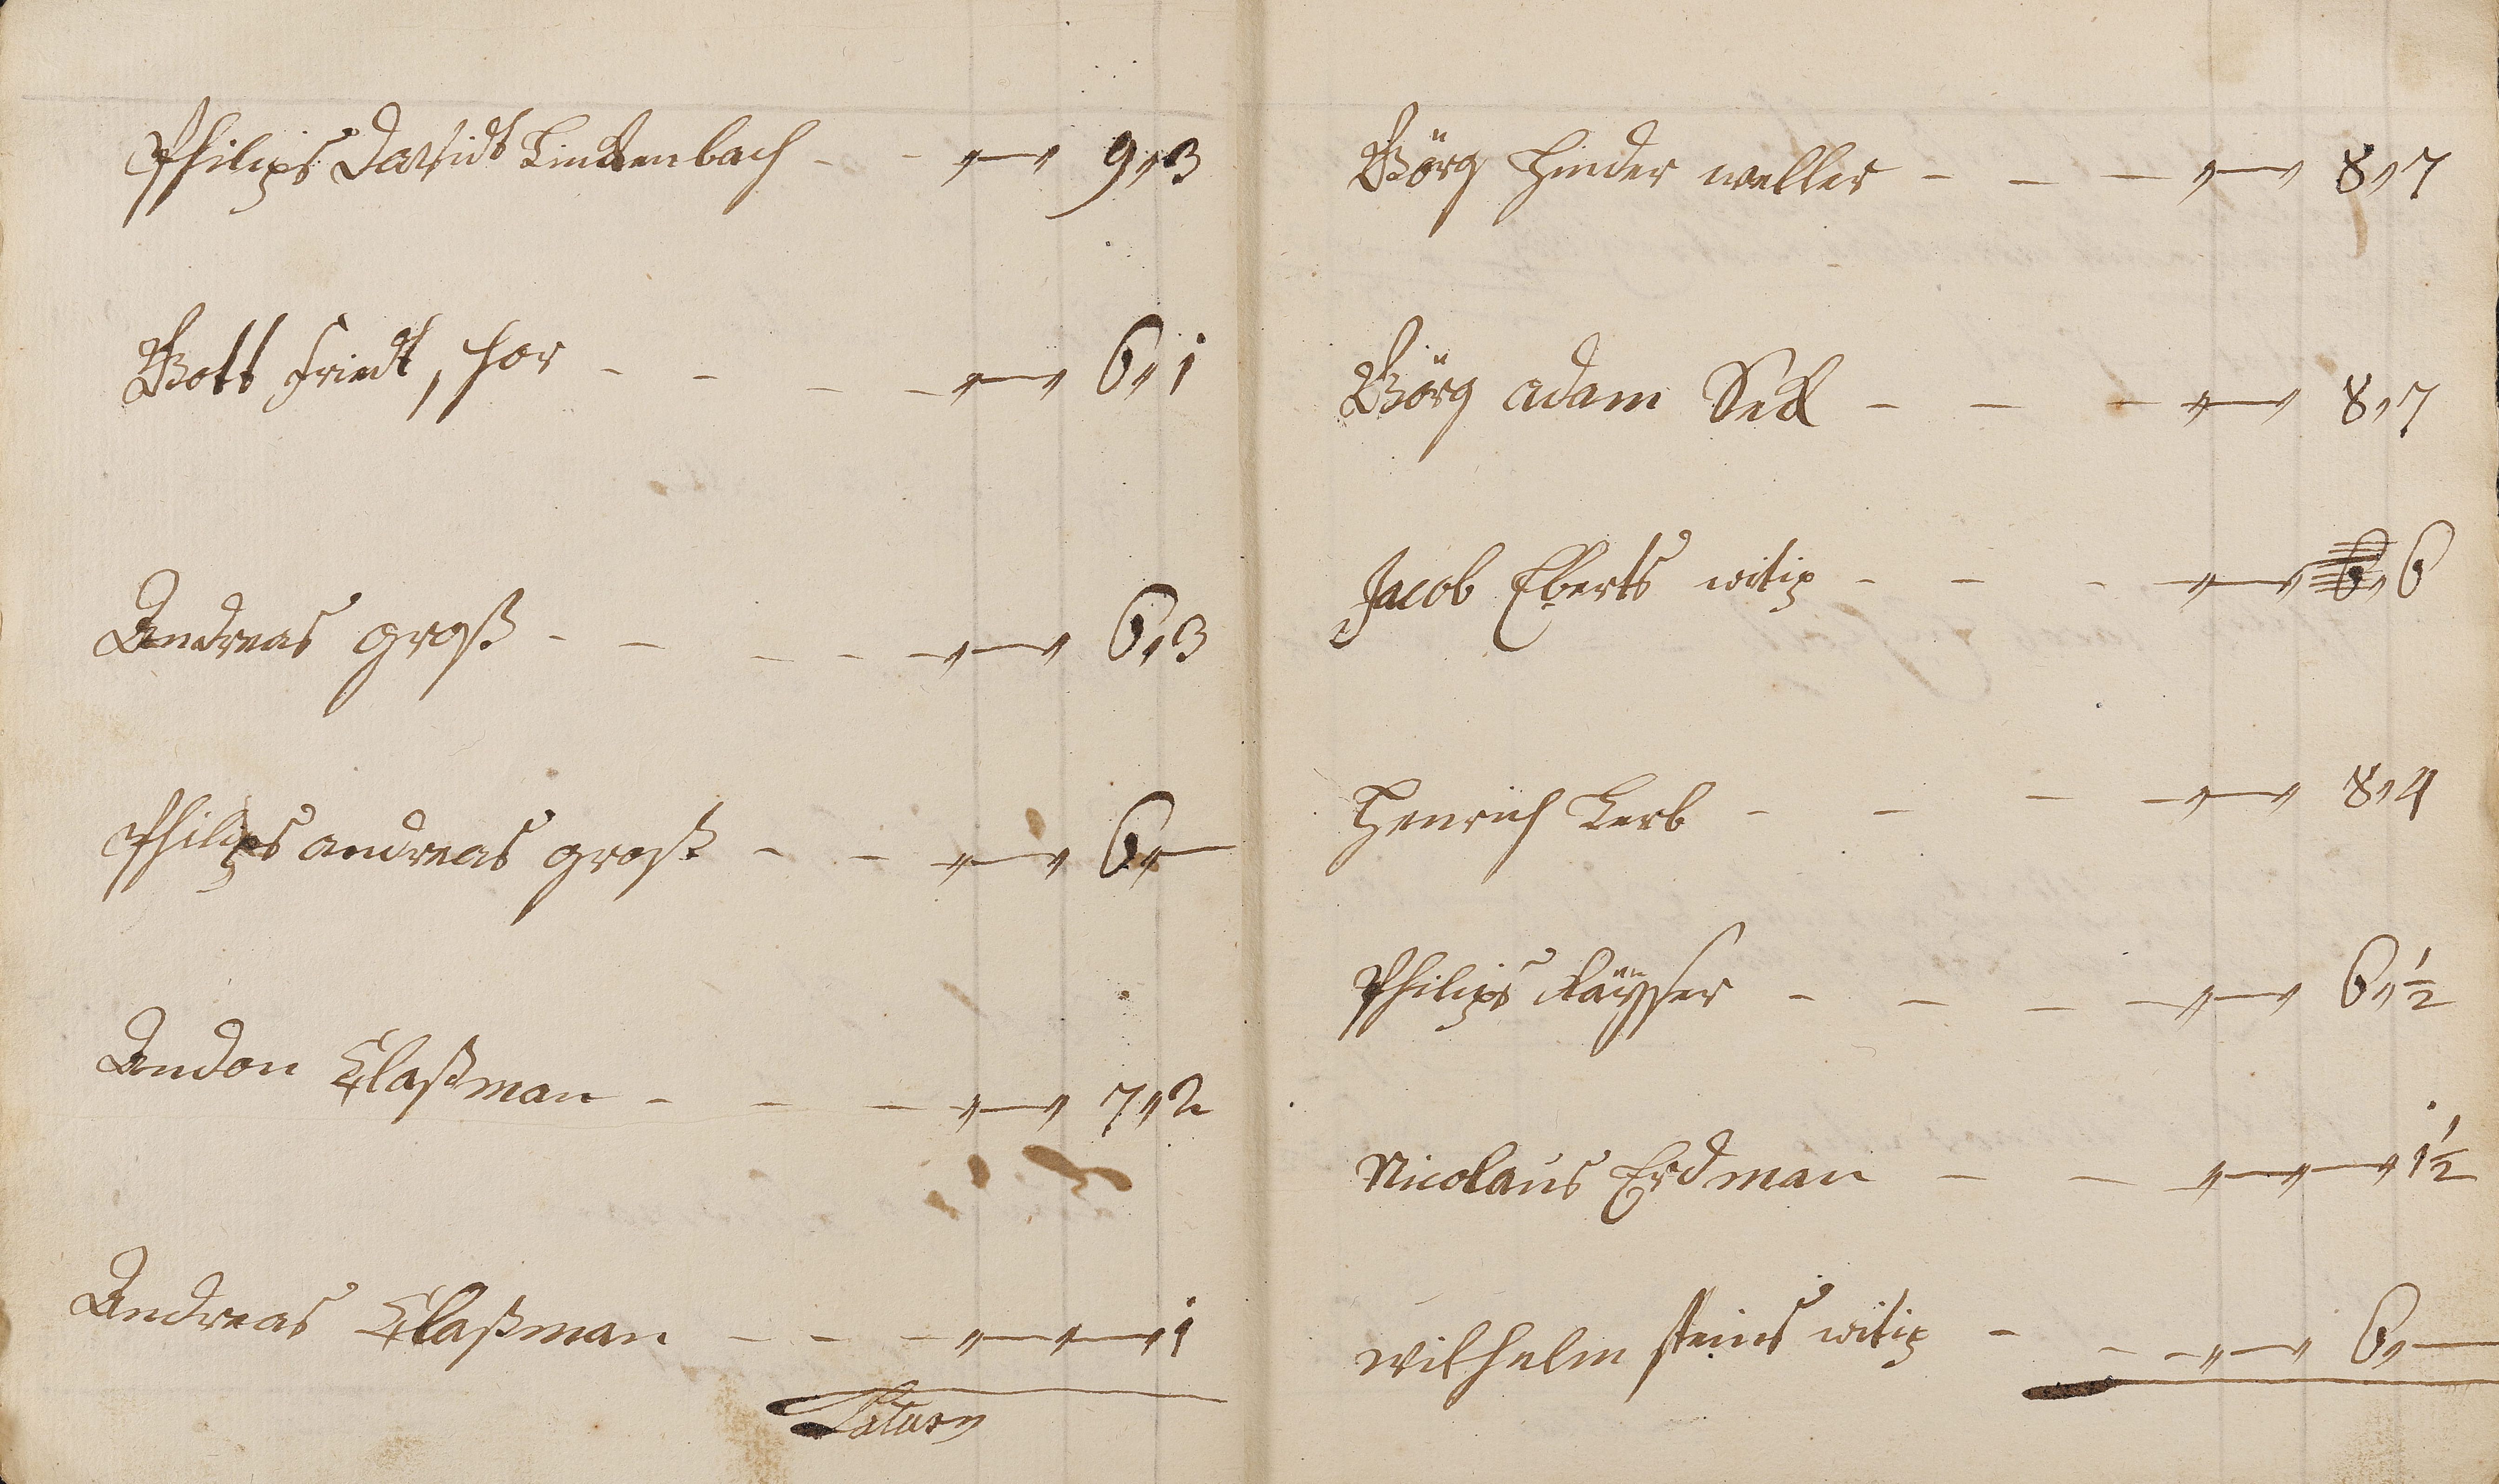 Philips Davidt Lindenbach - - „—„ 9„3
Gott friedt, hor - - - - „—„ 6„1
Andreas groß - - - - - „—„ 6„3
Philips andreas groß - - „—„ 6„—
Andon Claßman - - - „—„ 7„2
Andreas Claßman - - - „—„—„1
Latus
Görg Hinder weller - - - „—„ 8„7
Görg adam Seck - - - „—„ 8„7
Jacob Eberts witiz - - - - „—„ 6„6
Henrich Lerb - - - - „—„ 8„4
Philips Kaÿsser - - - - „—„ 6„½
Nicolaus Erdman - - - „—„—„1½
wilhelm steins witiz - - - „—„ 6„—